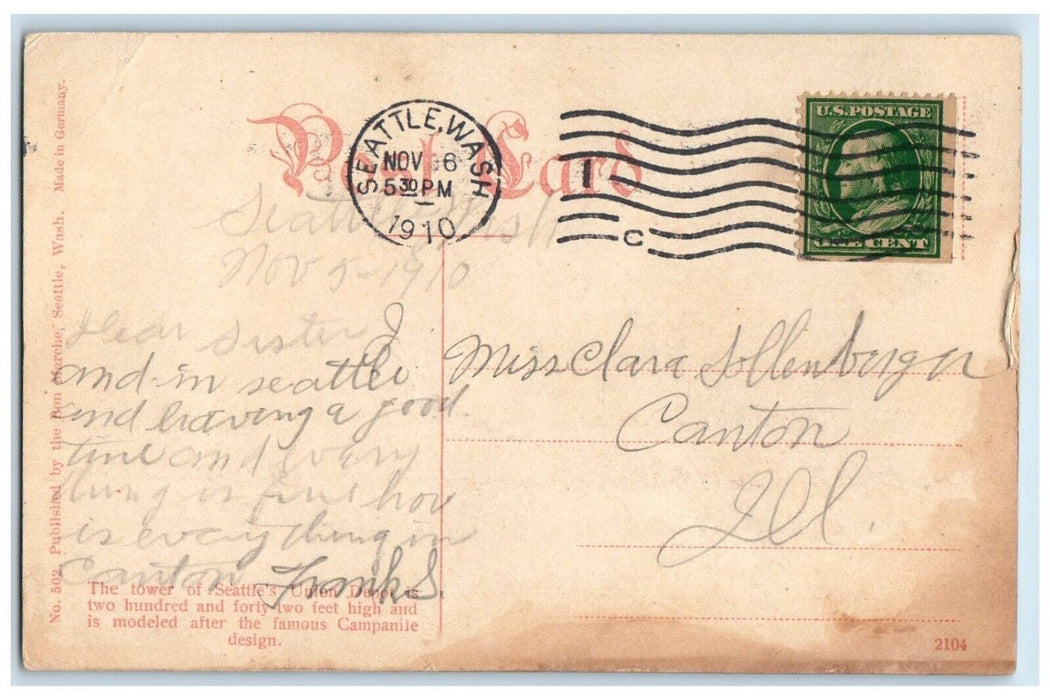 Post Card
SEATTLE, WASH.
NOV 6
5 30 PM
1910
1
C
U.S. POSTAGE
ONE CENT
Seattle Wash
Nov 5-1910
Dear Sister I
and in seattle
and having a good
time and every
thing is fine how
is everything in
Canton Frank S.
Miss Clara Sollenberger
Canton
Ill.
The tower of Seattle's Union Depot is
two hundred and forty two feet high and
is modeled after the famous Campanile
design.
No. 502. Published by the Bon Marche, Seattle, Wash. Made in Germany.
2104